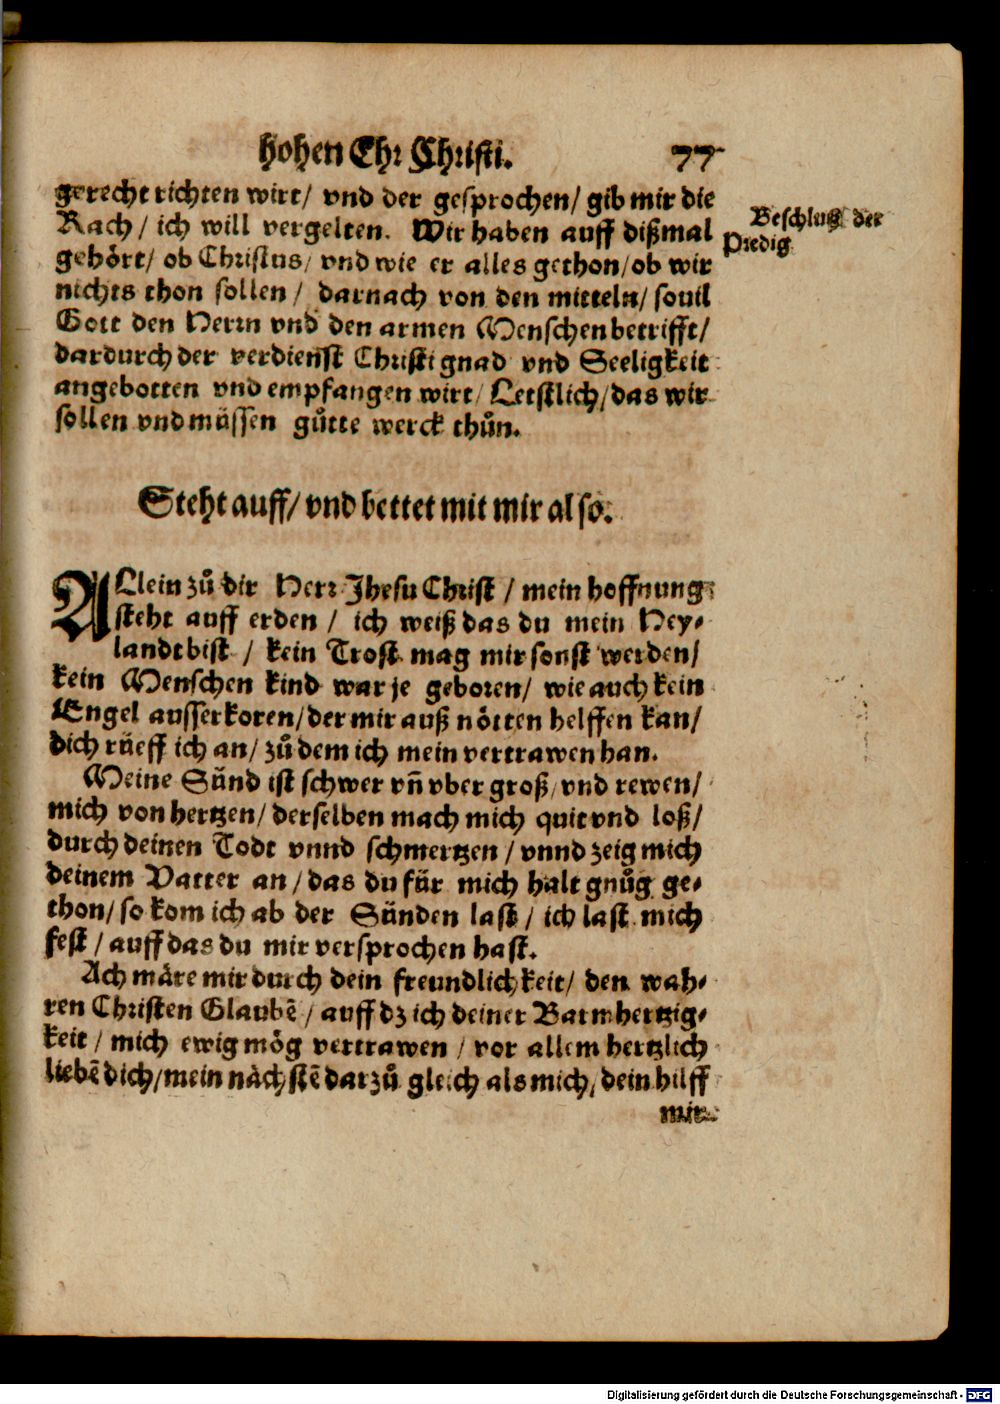 hohen Ehr Christi. 77
gerecht richten wirt/ vnd der gesprochen/ gib mir die
Rach/ ich will vergelten. Wir haben auff dißmal
Beschluß der
Predig
gehört/ ob Christus/ vnd wie er alles gethon/ ob wir
nichts thon sollen/ darnach von den mitteln/ souil
Gott den Herrn vnd den armen Menschen betrifft/
dardurch der verdienst Christi gnad vnd Seeligkeit
angebotten vnd empfangen wirt/ Letstlich/ das wir
sollen vnd müssen gůtte werck thůn.
Steht auff/ vnd bettet mit mir also.
ALlein zů dir Herr Jhesu Christ / mein hoffnung
steht auff erden / ich weiß das du mein Hey⸗
landt bist / kein Trost mag mir sonst werden/
kein Menschen kind war je geboren/ wie auch kein
Engel ausserkoren/ der mir auß nötten helffen kan/
dich rüeff ich an/ zů dem ich mein vertrawen han.
Meine Sünd ist schwer vñ vber groß/ vnd rewen/
mich von hertzen/ derselben mach mich quit vnd loß/
durch deinen Todt vnnd schmertzen / vnnd zeig mich
deinem Vatter an / das du für mich halt gnůg ge⸗
thon/ so kom ich ab der Sünden last / ich last mich
fest / auff das du mir versprochen hast.
Ach märe mir durch dein freundlichkeit/ den wah⸗
ren Christen Glaubē / auff dz ich deiner Barmhertzig⸗
keit / mich ewig mög vertrawen / vor allem hertzlich
liebē dich/ mein nächstē darzů gleich als mich/ dein hilff
mir
Digitalisierung gefördert durch die Deutsche Forschungsgemeinschaft - DFG